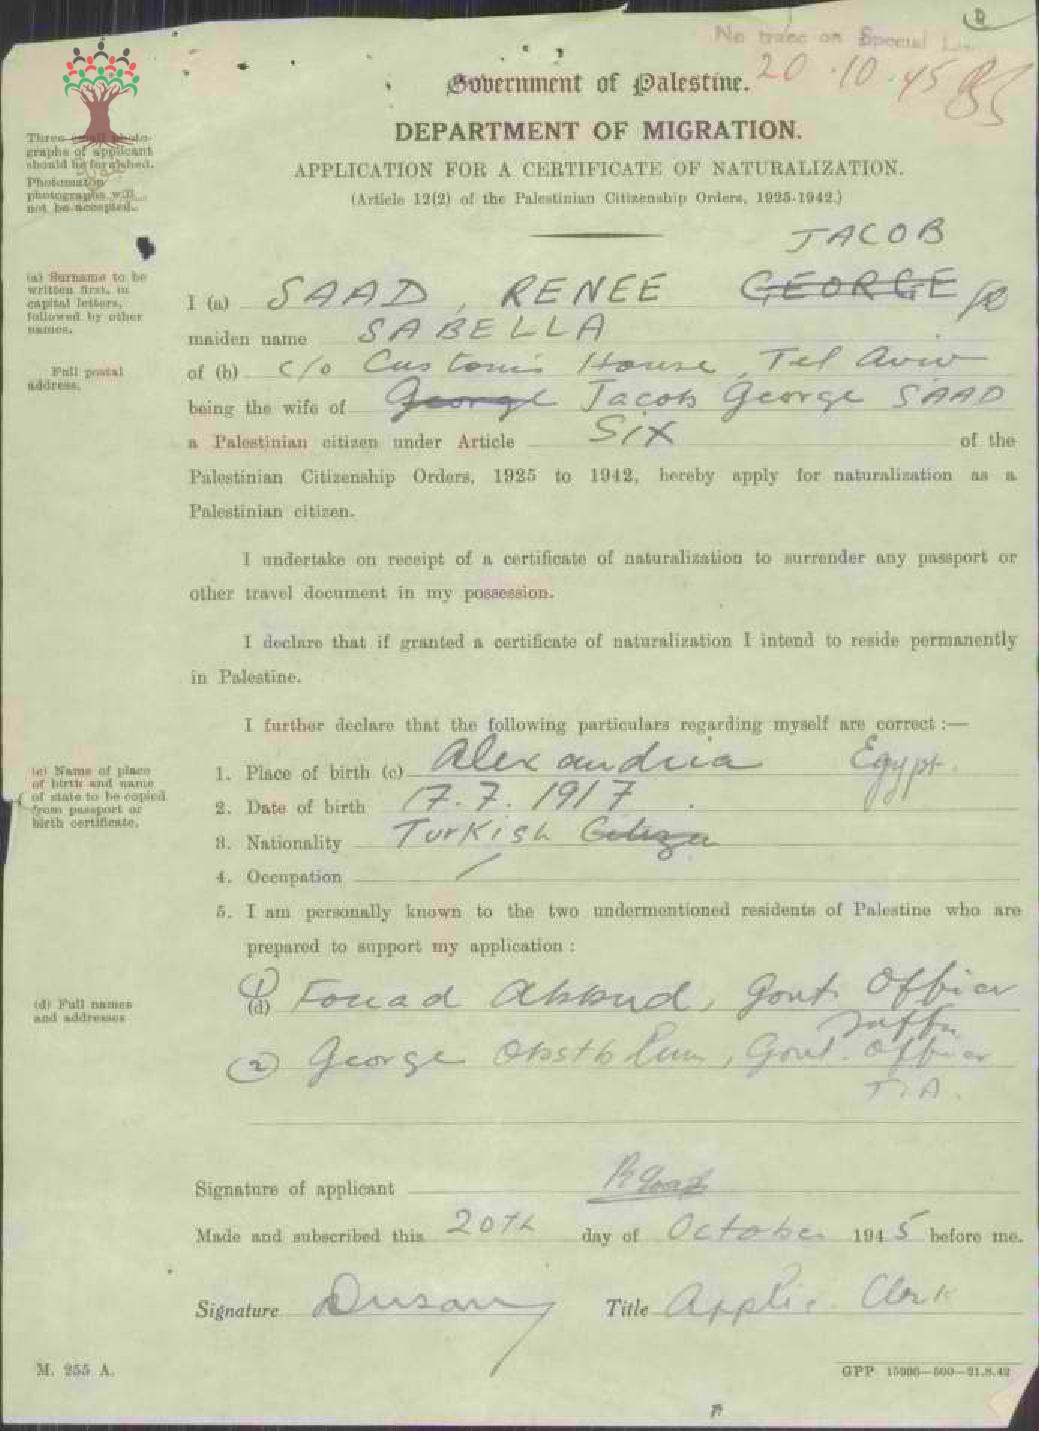 No trace on Special
20.10.45
Government of Palestine.
DEPARTMENT OF MIGRATION.
APPLICATION FOR A CERTIFICATE OF NATURALIZATION.
(Article 12(2) of the Palestinian Citizenship Orders, 1925-1942.)
Three small photo-
graphs of applicant
should be furnished.
Photomaton
photographs will
not be accepted.
JACOB
(a) Surname to be
written first, in
capital letters,
followed by other
names.
I (a) SAAD, RENEE GEORGE
maiden name SABELLA
Full postal
address.
of (b) c/o Customs House, Tel Aviv
being the wife of George Jacob George SAAD
a Palestinian citizen under Article Six of the
Palestinian Citizenship Orders, 1925 to 1942, hereby apply for naturalization as a
Palestinian citizen.
I undertake on receipt of a certificate of naturalization to surrender any passport or
other travel document in my possession.
I declare that if granted a certificate of naturalization I intend to reside permanently
in Palestine.
I further declare that the following particulars regarding myself are correct :—
(c) Name of place
of birth and name
of state to be copied
from passport or
birth certificate.
1. Place of birth (c) Alexandria Egypt.
2. Date of birth 17.7.1917.
3. Nationality Turkish
4. Occupation /
5. I am personally known to the two undermentioned residents of Palestine who are
prepared to support my application :
(d) Full names
and addresses
(1) (d) Fouad Abbud, Govt. Officer
Jaffa
(2) George , Govt. Officer
T.A.
Signature of applicant
Made and subscribed this 20th day of October 1945 before me.
Signature Title Applic. Clerk
M. 255 A.
GPP 15986—500—21.8.42